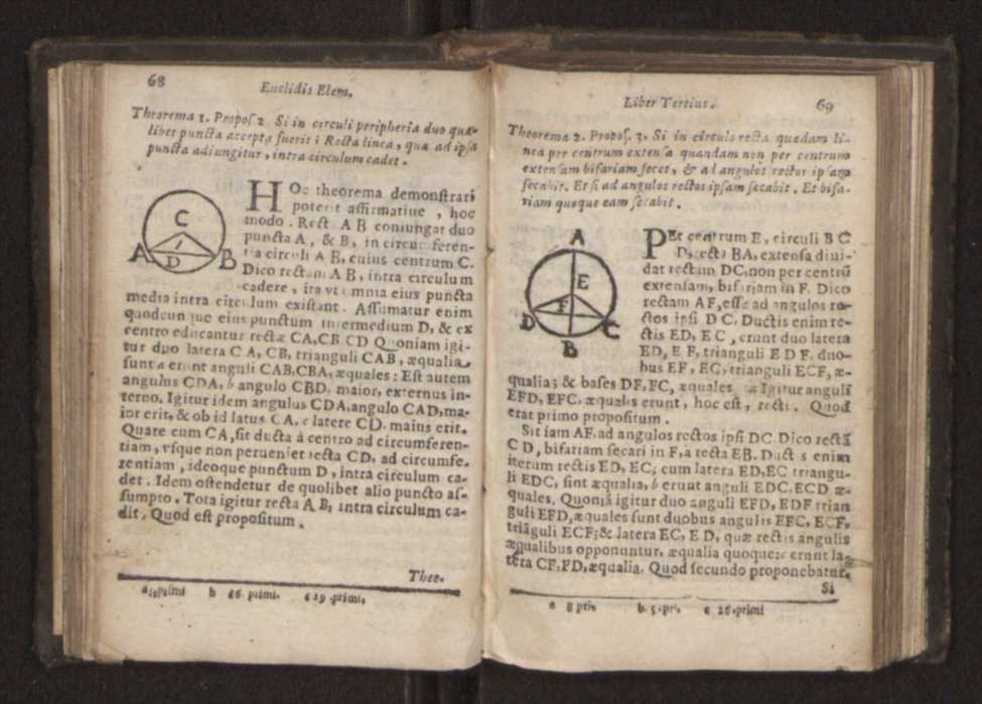 68
Euclidis Elem.
Theorema 1. Propos 2. Si in circuli peripheria duo quæ-
libet puncta accepta fuerit; Recta linea, quæ ad ipsa
puncta adiungitur, intra circulum cadet.
C
A
D
B
HOc theorema demonstrari
potest affirmatiue, hoc
modo. Recta A B coniungat duo
puncta A, & B, in circumferen-
tia circuli A B, cuius centrum C.
Dico rectam A B, intra circulum
cadere, ita vt omnia eius puncta
media intra circulum existant. Assumatur enim
quodcunque eius punctum intermedium D, & ex
centro educantur rectæ CA,CB CD Quoniam igi-
tur duo latera C A, CB, trianguli CAB, æqualia
sunt a erunt anguli CAB,CBA,æquales: Est autem
angulus CDA, b angulo CBD. maior, externus in-
terno. Igitur idem angulus CDA,angulo CAD,ma-
ior erit, & ob id latus CA, c latere CD. maius erit.
Quare cum CA, sit ducta à centro ad circumferen-
tiam, vsque non perueniet recta CD, ad circumfe-
rentiam, ideoque punctum D, intra circulum ca-
det. Idem ostendetur de quolibet alio puncto as-
sumpto. Tota igitur recta A B, intra circulum ca-
dit. Quod est propositum.
Theo-
a 5 primi b 16. primi. c 19 .primi.
Liber Tertius.
69
Theorema 2. Propos. 3. Si in circulo recta quædam li-
nea per centrum extensa quandam non per centrum
extensam bifariam secet, & ad angulos rectos ipsam
secabit. Et si ad angulos rectos ipsam secabit. Et bifa-
riam quoque eam secabit.
A
E
F
D
C
B
PEr centrum E, circuli B C
D, recta BA, extensa diui-
dat rectam DC,non per centrū
extensam, bifariam in F. Dico
rectam AF,esse ad angulos re-
ctos ipsi D C. Ductis enim re-
ctis ED, E C, erunt duo latera
ED, E F, trianguli E D F. duo-
bus EF, EC, trianguli ECF, æ-
qualia; & bases DF,FC, æquales a Igitur anguli
EFD, EFC, æquales erunt, hoc est, recti. Quod
erat primo propositum.
Sit iam AF.ad angulos rectos ipsi DC Dico rectā
C D, bifariam secari in F,a recta EB. Duct s enim
iterum rectis ED, EC; cum latera ED,EC triangu-
li EDC, sint æqualia, b erunt anguli EDC,ECD æ-
quales. Quoniā igitur duo anguli EFD, EDF trian
guli EFD,æquales sunt duobus angulis EFC, ECF,
triāguli ECF;& latera EC, E D, quæ rectis angulis
æqualibus opponuntur, æqualia quoque:c erunt la-
tera CF,FD,æqualia. Quod secundo proponebatur.
Si
a 8 pri. b. 5.pri. c 26.primi